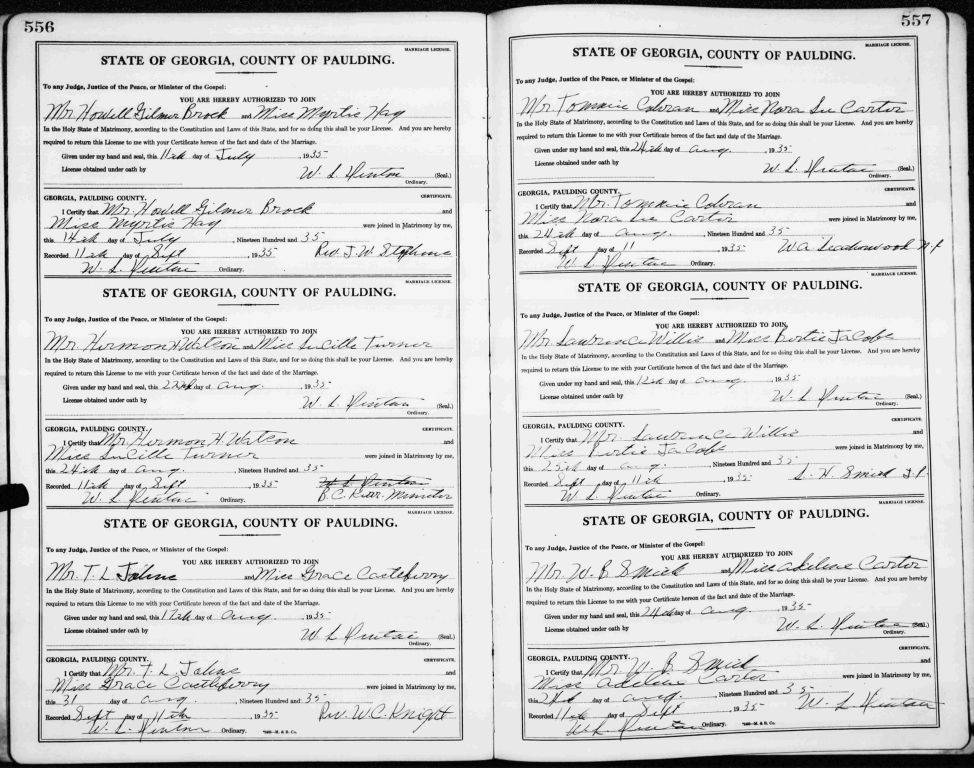 556
MARRIAGE LICENSE.
STATE OF GEORGIA, COUNTY OF PAULDING.
To any Judge, Justice of the Peace, or Minister of the Gospel:
YOU ARE HEREBY AUTHORIZED TO JOIN
Mr. Howell Gilmer Brock and Miss Myrtis Hay
In the Holy State of Matrimony, according to the Constitution and Laws of this State, and for so doing this shall be your License. And you are hereby
required to return this License to me with your Certificate hereon of the fact and date of the Marriage.
Given under my hand and seal, this 11th day of July, 1935
License obtained under oath by
W. L. Hinton (Seal.)
Ordinary.
GEORGIA, PAULDING COUNTY. CERTIFICATE.
I Certify that Mr. Howell Gilmer Brock and
Miss Myrtis Hay were joined in Matrimony by me,
this 14th day of July, Nineteen Hundred and 35
Recorded 11th day of Sept 1935 Rev. J. W. Stephens
W. L. Hinton Ordinary.
MARRIAGE LICENSE.
STATE OF GEORGIA, COUNTY OF PAULDING.
To any Judge, Justice of the Peace, or Minister of the Gospel:
YOU ARE HEREBY AUTHORIZED TO JOIN
Mr. Hermon H Watson and Miss Lucille Turner
In the Holy State of Matrimony, according to the Constitution and Laws of this State, and for so doing this shall be your License. And you are hereby
required to return this License to me with your Certificate hereon of the fact and date of the Marriage.
Given under my hand and seal, this day of Aug. , 1935
License obtained under oath by
W. L. Hinton (Seal.)
Ordinary.
GEORGIA, PAULDING COUNTY. CERTIFICATE.
I Certify that Mr. Hermon H. Watson and
Miss Lucille Turner were joined in Matrimony by me,
this 24th day of Aug. , Nineteen Hundred and 35
W. L. Hinton
Recorded 11th day of Sept 1935 B. C. Kerr. Minister
W. L. Hinton Ordinary.
MARRIAGE LICENSE.
STATE OF GEORGIA, COUNTY OF PAULDING.
To any Judge, Justice of the Peace, or Minister of the Gospel:
YOU ARE HEREBY AUTHORIZED TO JOIN
Mr. T. L and Miss Grace Castleberry
In the Holy State of Matrimony, according to the Constitution and Laws of this State, and for so doing this shall be your License. And you are hereby
required to return this License to me with your Certificate hereon of the fact and date of the Marriage.
Given under my hand and seal, this 17th day of Aug. , 1935
License obtained under oath by
W. L. Hinton (Seal.)
Ordinary.
GEORGIA, PAULDING COUNTY. CERTIFICATE.
I Certify that Mr. T. L and
Miss Grace Castleberry were joined in Matrimony by me,
this 31 day of Aug. , Nineteen Hundred and 35
Recorded Sept day of 11th 1935 Rev. W. C. Knight
W. L. Hinton Ordinary. M. & B. Co.
557
MARRIAGE LICENSE.
STATE OF GEORGIA, COUNTY OF PAULDING.
To any Judge, Justice of the Peace, or Minister of the Gospel:
YOU ARE HEREBY AUTHORIZED TO JOIN
Mr. Tommie Cobran and Miss Nora Lee Carter
In the Holy State of Matrimony, according to the Constitution and Laws of this State, and for so doing this shall be your License. And you are hereby
required to return this License to me with your Certificate hereon of the fact and date of the Marriage.
Given under my hand and seal, this 24th day of Aug. , 1935
License obtained under oath by
W. L. Hinton (Seal.)
Ordinary.
GEORGIA, PAULDING COUNTY. CERTIFICATE.
I Certify that Mr. Tommie Cobran and
Miss Nora Lee Carter were joined in Matrimony by me,
this 24th day of Aug. , Nineteen Hundred and 35
Recorded Sept day of 11 1935 W. A. Leatherwood N. P.
W. L. Hinton Ordinary.
MARRIAGE LICENSE.
STATE OF GEORGIA, COUNTY OF PAULDING.
To any Judge, Justice of the Peace, or Minister of the Gospel:
YOU ARE HEREBY AUTHORIZED TO JOIN
Mr. Lawrence Willis and Miss Portie Jacobs
In the Holy State of Matrimony, according to the Constitution and Laws of this State, and for so doing this shall be your License. And you are hereby
required to return this License to me with your Certificate hereon of the fact and date of the Marriage.
Given under my hand and seal, this 12th day of Aug. , 1935
License obtained under oath by
W. L. Hinton (Seal.)
Ordinary.
GEORGIA, PAULDING COUNTY. CERTIFICATE.
I Certify that Mr. Lawrence Willis and
Miss Portie Jacobs were joined in Matrimony by me,
this 25th day of Aug. , Nineteen Hundred and 35
Recorded Sept day of 11th 1935 S. H. Smith J. P.
W. L. Hinton Ordinary.
MARRIAGE LICENSE.
STATE OF GEORGIA, COUNTY OF PAULDING.
To any Judge, Justice of the Peace, or Minister of the Gospel:
YOU ARE HEREBY AUTHORIZED TO JOIN
Mr. W. B Smith and Miss Adeline Carter
In the Holy State of Matrimony, according to the Constitution and Laws of this State, and for so doing this shall be your License. And you are hereby
required to return this License to me with your Certificate hereon of the fact and date of the Marriage.
Given under my hand and seal, this 24th day of Aug. , 1935
License obtained under oath by
W. L. Hinton (Seal.)
Ordinary.
GEORGIA, PAULDING COUNTY. CERTIFICATE.
I Certify that Mr. W. B Smith and
Miss Adeline Carter were joined in Matrimony by me,
this 24th day of Aug. , Nineteen Hundred and 35
Recorded 11th day of Sept 1935 W. L. Hinton
W. L. Hinton Ordinary. M. & B. Co.